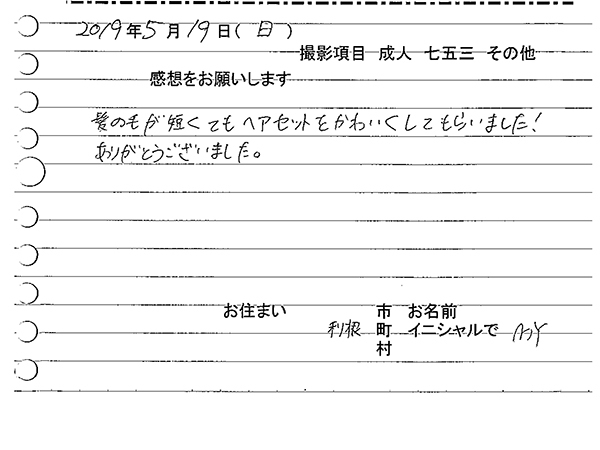 2019年5月19日(日)
撮影項目 成人 七五三 その他
感想をお願いします
髪の毛が短くてもヘアセットをかわいくしてもらいました!
ありがとうございました。
お住まい 市 お名前
利根 町 イニシャルで
村